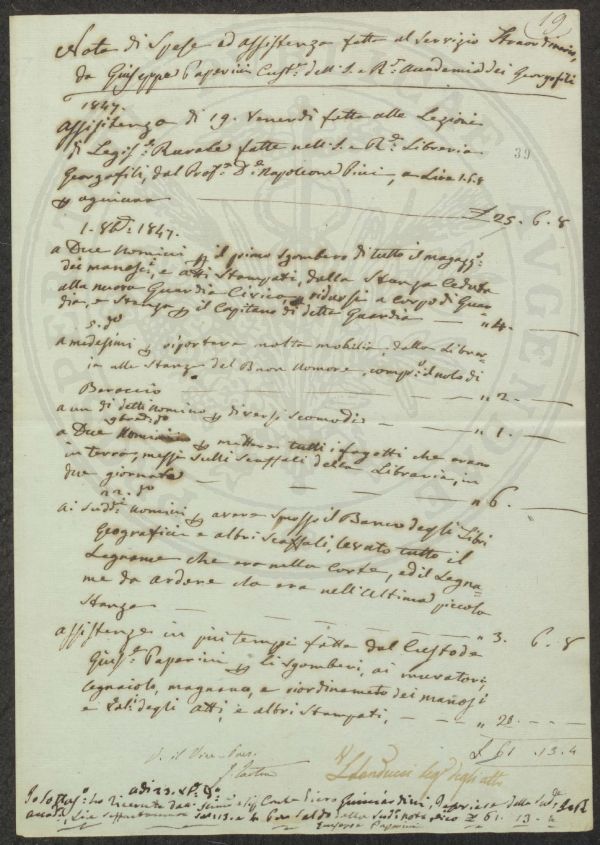 19
Nota di Spese ed assistenza fatta al Servizio Straordinario,
da Giuseppe Paperini Custe. dell'I. e R. Accademia dei Georgofili
1847.
Assistenza di 19. Venerdì fatta alle Lezioni
di Legis. Rurale fatte nell'I. e R. Libreria
39
Georgofili, dal Prof. D. Napoleone Pini, a Lire 1.6.8
ognuna £ 25. 6. 8
1847.
a Due uomini il primo sgombero di tutto il magazz.
dei manosi, e atti Stampati, dalla Stanza Ceduta
alla nuova Guardia Civica, a ridursi a Corpo di Guar-
dia, e Stanza il Capitano di detta Guardia " 4.
5. do
a medesimi riportare molta mobilia, dalla Libre-
ria alle Stanze del Buon umore, il nolo di
Baroccio " 2.
a un di detti uomini diversi Scomodi " 1.
a Due uomini mettere tutti i fagotti che erano
in terra, messi sulli Scaffali della Libreria, in
due giornate " 6.
22. do
ai sudd. uomini avere smosso il Banco degli Libi
Geografici e altri Scaffali, levato tutto il
Legname che era nella Corte, ed il Legna-
me da ardere che era nell'Ultima piccola
Stanza " 3. 6. 8
Assistenze in più tempi fatta dal Custode
Gius. Paperini li Sgomberi, ai muratori,
Legnaiolo, magnano, e riordinamento dei manosi
e degli Atti, e altri Stampati, " 20.
£ 61. 13. 4
V. il Vice Pres.
adi 23.
Io Sotto. ho ricevuto dal Sig. Conte Piero Guicciardini, della Sud.
Lire Saldo della Sud. nota, dico £ 61. 13. 4
Giuseppe Paperini